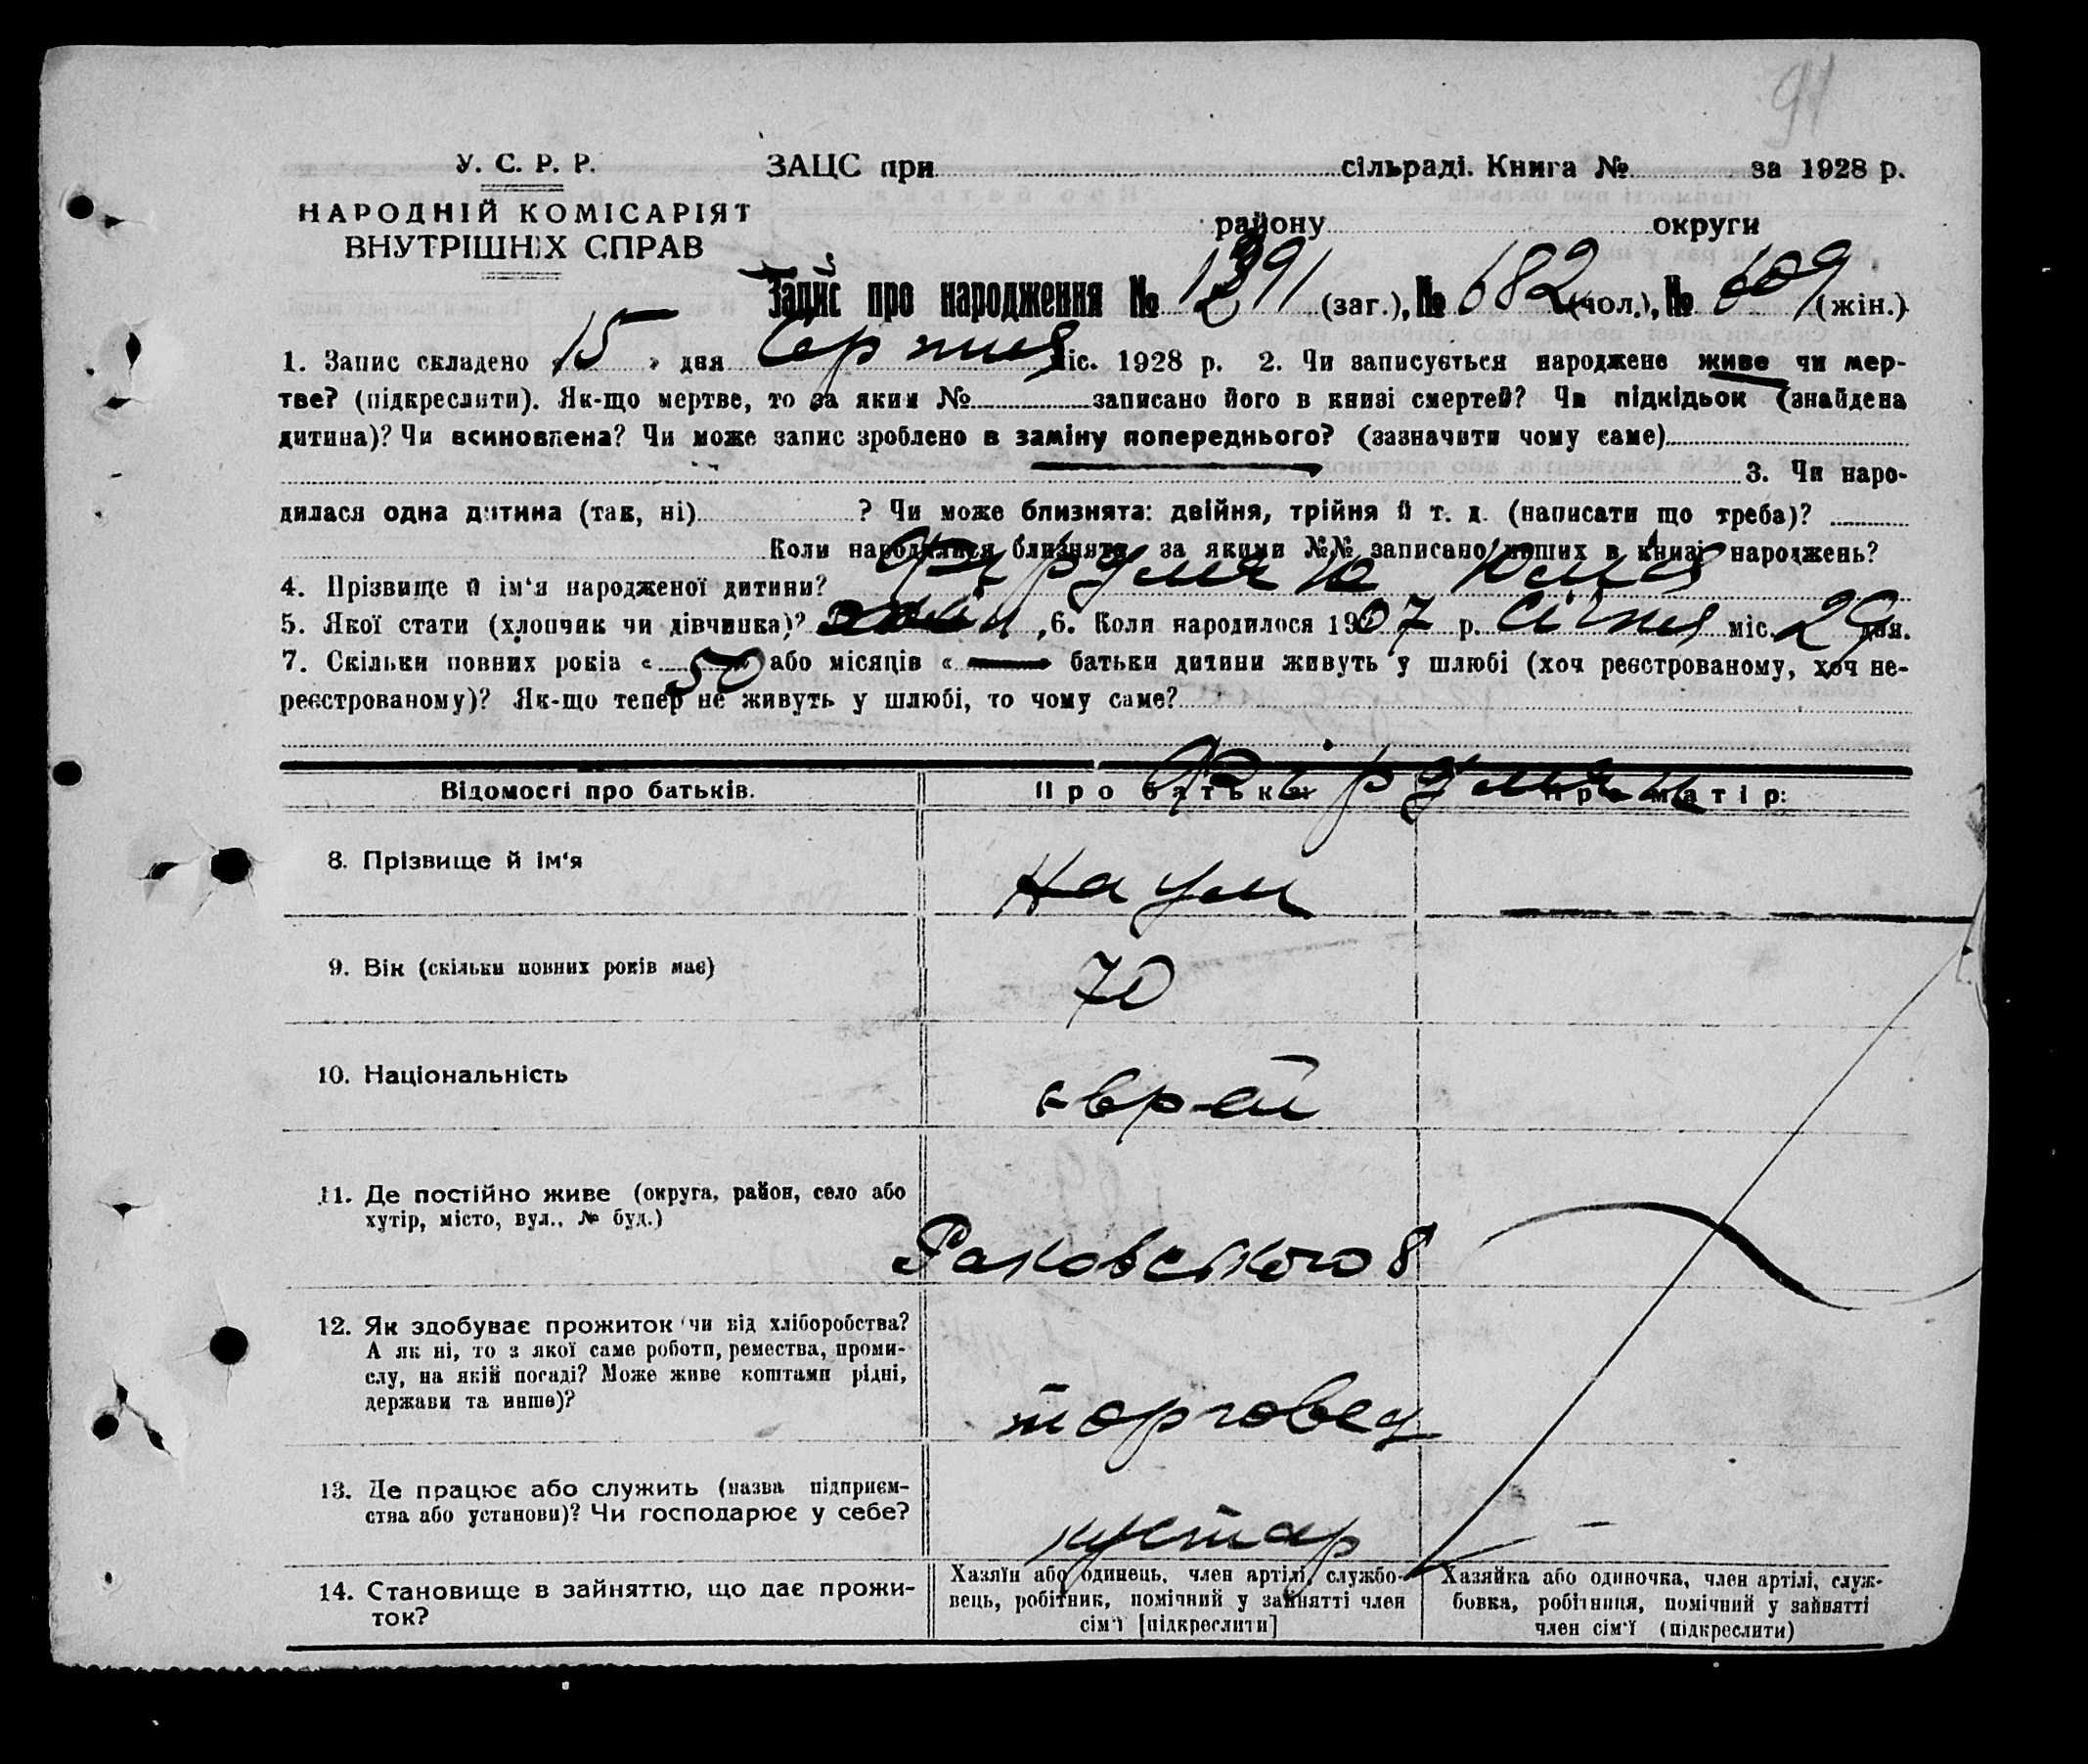 91
У. С. Р. Р.
НАРОДНІЙ КОМІСАРІЯТ
ВНУТРІШНІХ СПРАВ
ЗАЦС при сільраді. Книга № за 1928 р.
району округи
Запис про народження № 1291 (заг.), № 682 (чол.), № 609 (жін.)
1. Запис складено « 15 » дня Серпня міс. 1928 р. 2. Чи записується народжене живе чи мер-
тве? (підкреслити). Як-що мертве, то за яким № записано його в книзі смертей? Чи підкідьок (знайдена
дитина)? Чи всиновлена? Чи може запис зроблено в заміну попереднього? (зазначити чому саме)
3. Чи наро-
дилася одна дитина (так, ні) ? Чи може близнята: двійня, трійня й т. д. (написати що треба)?
Коли народилися близнята, за якими №№ записано инших в книзі народжень?
4. Прізвище й ім'я народженої дитини?
5. Якої стати (хлопчик чи дівчинка)? , 6. Коли народилося 1907 р. Січня міс. 29 дня.
7. Скільки повних років « 50 » або місяців « » батьки дитини живуть у шлюбі (хоч реєстрованому, хоч не-
реєстрованому)? Як-що тепер не живуть у шлюбі, то чому саме?
Відомості про батьків. Про батька: Про матір:
8. Прізвище й ім'я Наум
9. Вік (скільки повних років має) 70
10. Національність єврей
11. Де постійно живе (округа, район, село або
хутір, місто, вул., № буд.)
Раковського 8
12. Як здобуває прожиток (чи від хліборобства?
А як ні, то з якої саме роботи, ремества, проми-
слу, на якій посаді? Може живе коштами рідні,
держави та инше)?
торговец
13. Де працює або служить (назва підприєм-
ства або установи)? Чи господарює у себе?
кустар
14. Становище в зайняттю, що дає прожи-
ток?
Хазяїн або одинець, член артілі, службо-
вець, робітник, помічний у зайнятті член
сім'ї [підкреслити]
Хазяйка або одиночка, член артілі, служ-
бовка, робітниця, помічний у зайнятті
член сім'ї (підкреслити)